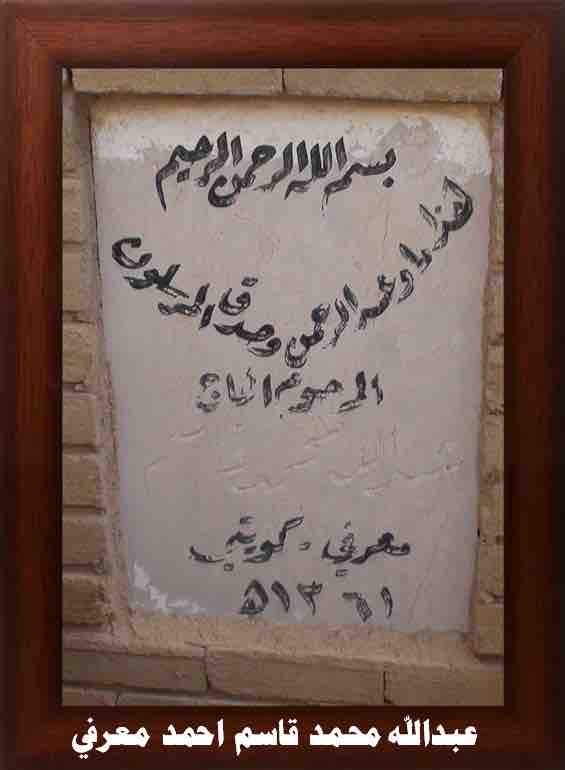 بسم الله الرحمن الرحيم
هذا ما وعد الرحمن وصدق المرسلون
المرحوم الحاج
عبدالله محمد قاسم
معرفي - كويتي
٥١٣٦١
عبدالله محمد قاسم احمد معرفي